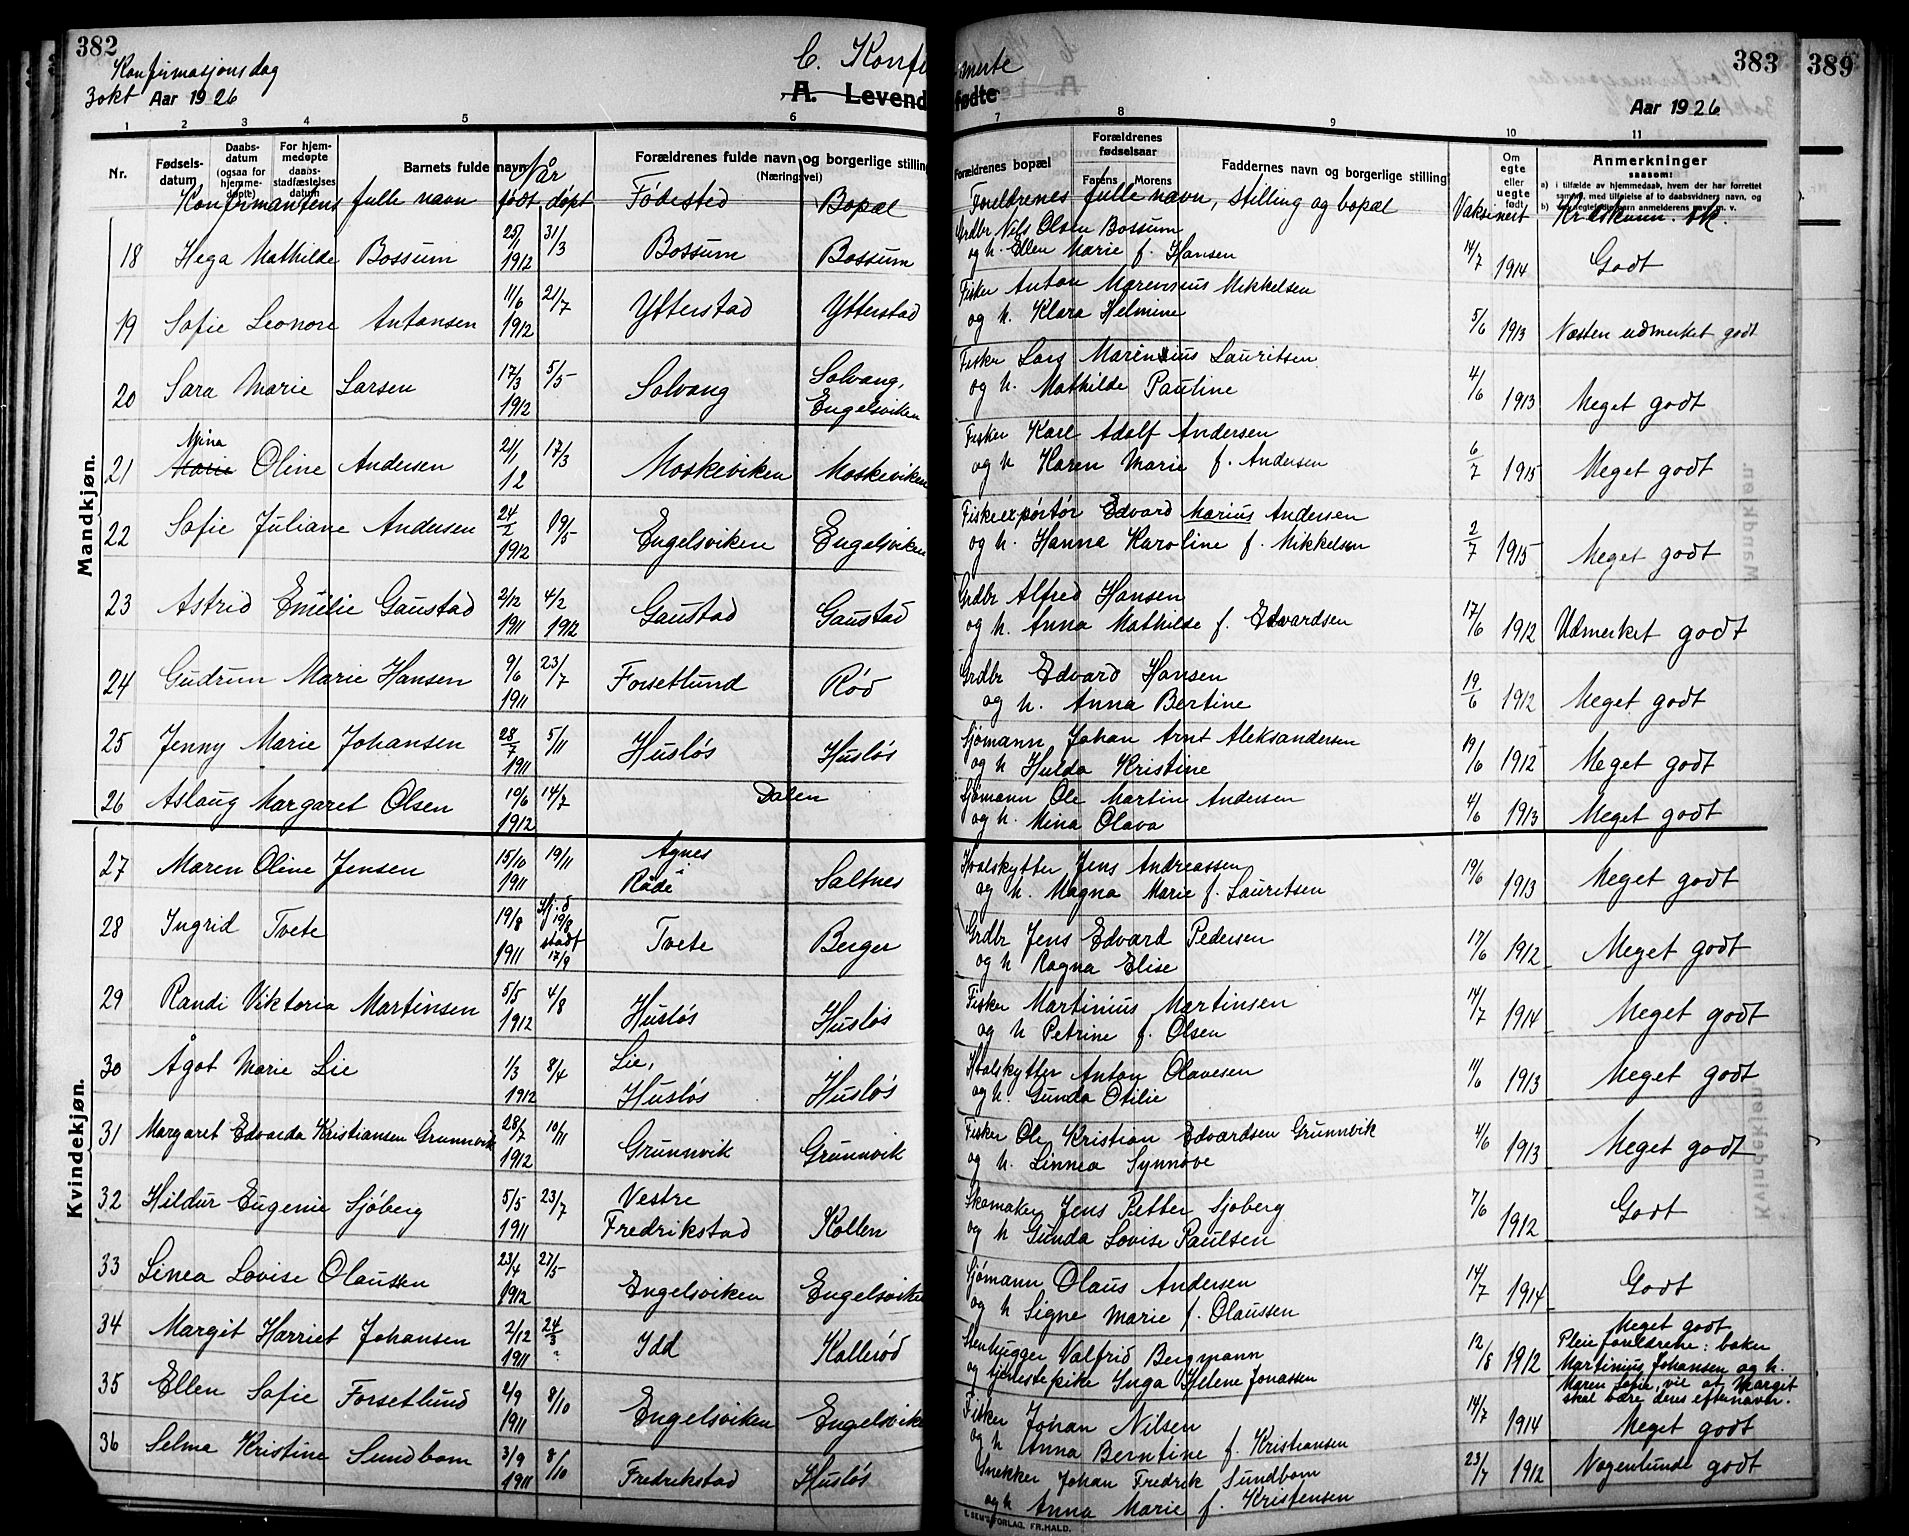 382
383
389
Konfirmasjonsdag
3 okt Aar 1926
C. Konfirmerte
A. Levendefødte
Aar 1926
1 2 3 4 5 6 7 8 9 10 11
Nr. Fødsels-datum Daabs-datum (ogsaa for hjemme-døpte) For hjem-medøpte daabs-stadfæstelses datum Barnets fulde navn Forældrenes fulde navn og borgerlige stilling (Næringsvei) Forældrenes bopæl Forældrenes fødselsaar Farens Morens Faddernes navn og borgerlige stilling Om egte eller uegte født Anmerkninger saasom:
a) i tilfælde av hjemmedaab, hvem der har forrettet samme, med tilføielse af to daabsvidners navn, og
Når
Konfirmantens fulle navn født døpt Fødested Bopæl Foreldrenes fulle navn, stilling og bopæl Vaksinert
Mandkjøn.
18 Hega Mathilde Bossum 25/1 1912 31/3 Bossum Bossum Grdbr Nils Olsen Bossum
og h. Ellen Marie f. Hansen 14/7 1914 Godt
19 Sofie Leonore Antonsen 11/6 1912 21/7 Ytterstad Ytterstad Fisker Anton Marensius Mikkelsen
og h. Klara Helmine 5/6 1913 Næsten udmerket godt
20 Sara Marie Larsen 17/3 1912 5/5 Solvang Solvang, Engelsviken Fisker Lars Marensius Lauritsen
og h. Mathilde Pauline 4/6 1913 Meget godt
21 Mina Marie Oline Andersen 21/1 12 17/3 Moskeviken Moskeviken Fisker Karl Adolf Andersen
og h Karen Marie f. Andersen 6/7 1915 Meget godt
22 Sofie Juliane Andersen 24/2 1912 19/5 Engelsviken Engelsviken Fiskeexportør Edvard Marius Andersen
og h. Hanna Karoline f. Mikkelsen 2/7 1915 Meget godt
23 Astrid Emilie Gaustad 2/12 1911 4/2 1912 Gaustad Gaustad Grdbr Alfred Hansen
og h. Anna Mathilde f. Edvardsen 17/6 1912 Udmerket godt
24 Gudrun Marie Hansen 9/6 1911 23/7 Forsetlund Rød Grdbr Edvard Hansen
og h. Anna Bertine 19/6 1912 Meget godt
25 Jenny Marie Johansen 28/7 1911 5/11 Husløs Husløs Sjømann Johan Arnt Aleksandersen
og h Hulda Kristine 19/6 1912 Meget godt
26 Aslaug Margaret Olsen 19/6 1912 14/7 Dalen Sjømann Ole Martin Andersen
og h. Mina Olava 4/6 1913 Meget godt
Kvindekjøn.
27 Maren Oline Jensen 15/10 1911 19/11 Agnes Råde Saltnes Hvalskytter Jens Andreassen
og h. Magna Marie f. Lauritsen 19/6 1913 Meget godt
28 Ingrid Tvete 19/8 1911 Hj. d 19/8 stadf 17/9 Tvete Berger Grdbr Jens Edvard Pedersen
og h Ragna Elise 17/6 1912 Meget godt
29 Randi Viktoria Martinsen 5/5 1912 4/8 Husløs Husløs Fisker Martinius Martinsen
og h Petrine f. Olsen 14/7 1914 Meget godt
30 Ågot Marie Lie 1/3 1912 8/4 Lie, Husløs Husløs Hvalskytter Anton Olavesen
og h. Gunda Otilie 11/6 1913 Meget godt
31 Margaret Edvarda Kristiansen Grunnvik 28/7 1912 10/11 Grunnvik Grunnvik Fisker Ole Kristian Edvardsen Grunnvik
og h. Linnea Synnøve 4/6 1913 Meget godt
32 Hildur Eugenie Sjøberg 5/5 1911 23/7 Vestre Fredrikstad Kollen Skomaker Jens Petter Sjøberg
og h Gunda Lovise Paulsen 7/6 1912 Godt
33 Linea Lovise Olaussen 23/4 1912 27/5 Engelsviken Engelsviken Sjømann Olaus Andersen
og h Signe Marie f. Olaussen 14/7 1914 Godt
34 Margit Harriet Johansen 2/12 1911 24/3 Idd Kallerød Stenhugger Valfrid Bergmann
og tjenestepike Inga Helene Jonassen 12/8 1912 Meget godt
Pleieforeldrene: baker
Martinius Johansen og h.
Maren Sofie, vil at Margit
skal bære deres efternavn.
35 Ellen Sofie Forsetlund 2/9 1911 8/10 Engelsviken Engelsviken Fisker Johan Nilsen
og h Anna Berntine f. Kristiansen 14/7 1914 Meget godt
36 Selma Kristine Sundbom 3/9 1911 8/10 Fredrikstad Husløs Snekker Johan Fredrik Sundbom
og h Anna Marie f. Kristensen 23/7 1912 Nogenlunde godt
E. SEM'S FORLAG, FR.HALD.